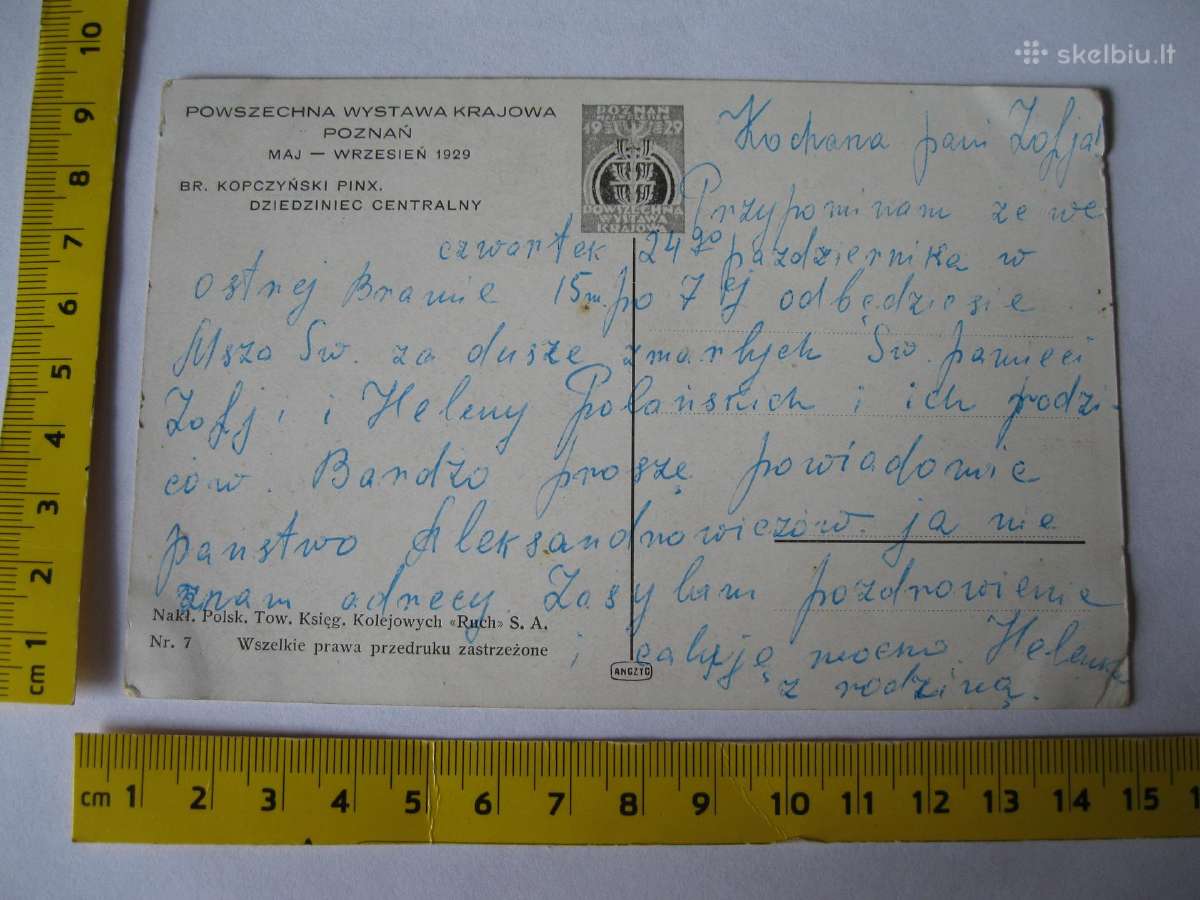 skelbiu.lt
POWSZECHNA WYSTAWA KRAJOWA
POZNAŃ
MAJ — WRZESIEŃ 1929
BR. KOPCZYŃSKI PINX.
DZIEDZINIEC CENTRALNY
POZNAŃ
1929
POWSZECHNA
WYSTAWA
KRAJOWA
Kochana pani Zofja!
Przypominam ze we
czwartek 24go pazdziernika w
Ostrej Bramie 15m. po 7ej odbędziesie
Msza Sw. za dusze zmarłych Sw. pamieci
Zofji i Heleny Polańskich i ich rodzi-
ców. Bardzo proszę powiadomic
państwo Aleksandrowiczów. ja nie
znam adrecy Zasyłam pozdrowienia
i całuję mocno Helena
z rodziną.
Nakł. Polsk. Tow. Księg. Kolejowych «Ruch» S. A.
Nr. 7 Wszelkie prawa przedruku zastrzeżone
ANCZYC
10
9
8
7
6
5
4
3
2
cm 1
cm 1 2 3 4 5 6 7 8 9 10 11 12 13 14 15